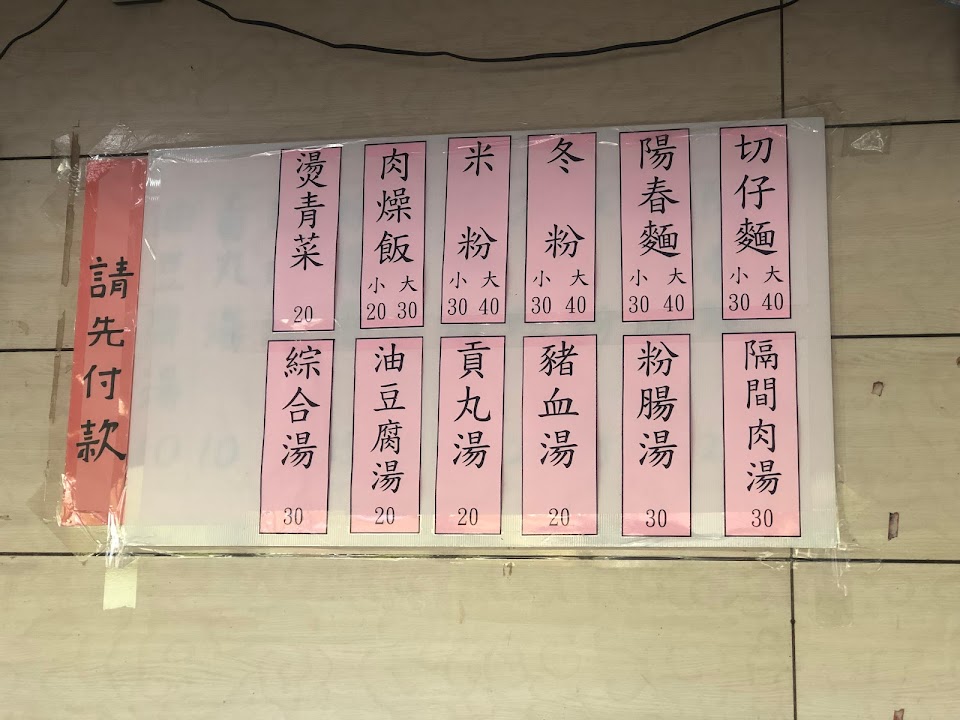 切仔麵
小 大
30 40
陽春麵
小 大
30 40
冬粉
小 大
30 40
米粉
小 大
30 40
肉燥飯
小 大
20 30
燙青菜
20
隔間肉湯
30
粉腸湯
30
豬血湯
20
貢丸湯
20
油豆腐湯
20
綜合湯
30
請先付款